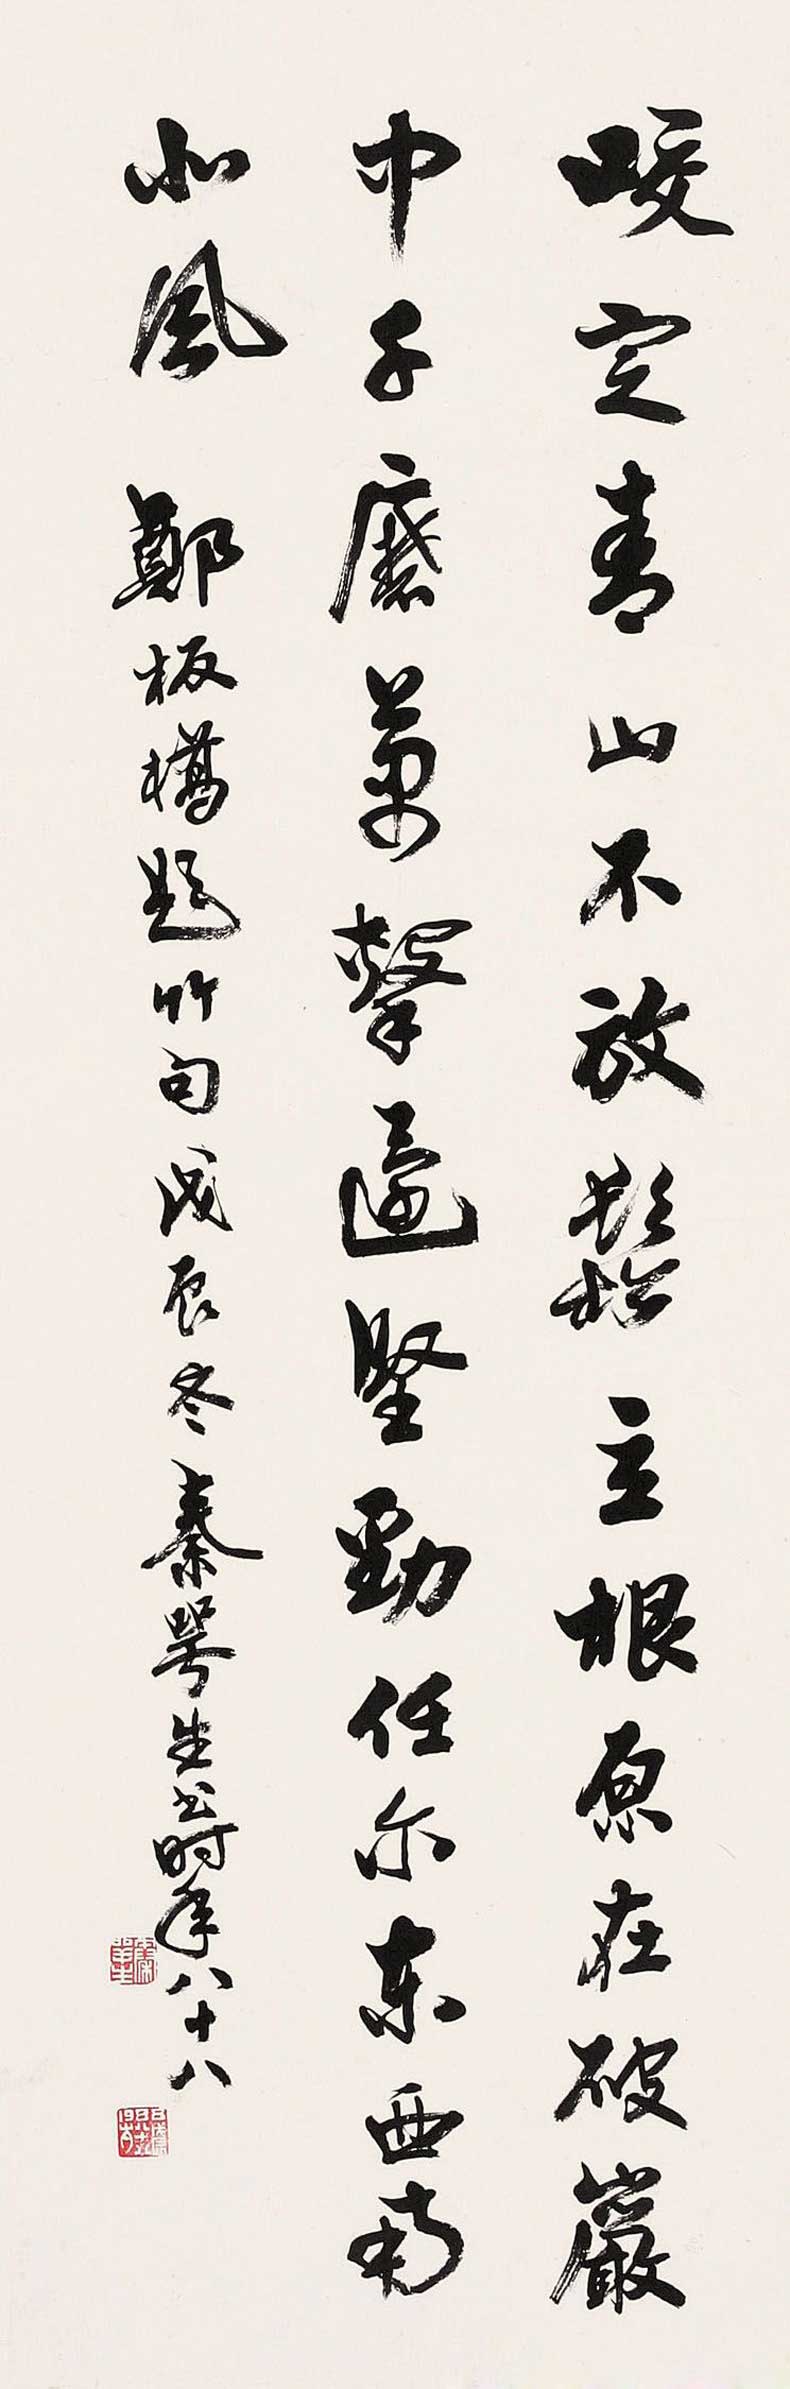 咬定青山不放鬆立根原在破巖
中千磨萬擊還堅勁任尔東西南
北風 鄭板橋題竹句戊辰冬秦咢生書時年八十八
秦咢生